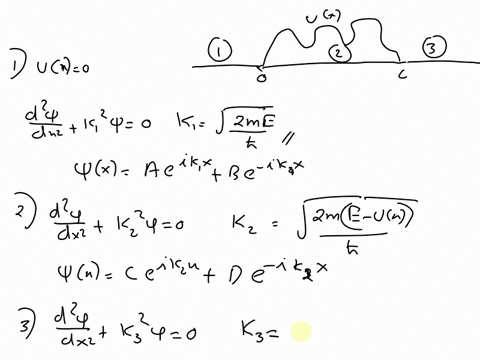 U(x)
① ② ③
0 C
1) U(x)=0
d²φ/dx² + K₁²φ=0 K₁= √(2mE)/ħ //
ψ(x)= A e^{ik₁x} + B e^{-ik₁x}
2) d²φ/dx² + K₂²φ=0 K₂ = √(2m(E-U(x)))/ħ
ψ(x)= C e^{ik₂x} + D e^{-ik₂x}
3) d²φ/dx² + K₃²φ=0 K₃=